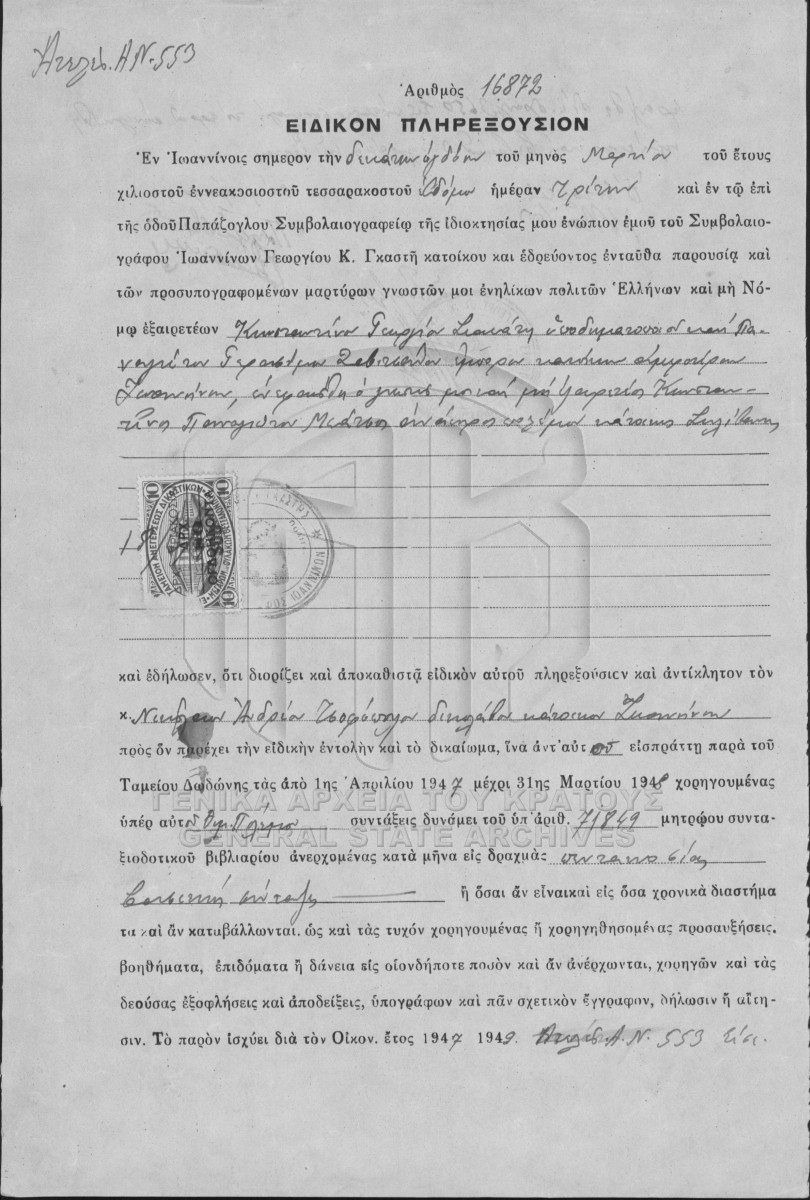 Ἀτελές. ΑΝ. 553
Ἀριθμὸς 16872
ΕΙΔΙΚΟΝ ΠΛΗΡΕΞΟΥΣΙΟΝ
Ἐν Ἰωαννίνοις σημερον τὴν δεκάτην ὀγδόην τοῦ μηνὸς Μαρτίου τοῦ ἔτους
χιλιοστοῦ ἐννεακοσιοστοῦ τεσσαρακοστοῦ ἑβδόμου ἡμέραν Τρίτην καὶ ἐν τῷ ἐπὶ
τῆς ὁδοῦ Παπάζογλου Συμβολαιογραφείῳ τῆς ἰδιοκτησίας μου ἐνώπιον ἐμοῦ τοῦ Συμβολαιο-
γράφου Ἰωαννίνων Γεωργίου Κ. Γκαστῆ κατοίκου και ἑδρεύοντος ἐνταῦθα παρουσίᾳ καὶ
τῶν προσυπογραφομένων μαρτύρων γνωστῶν μοι ἐνηλίκων πολιτῶν Ἑλλήνων καὶ μὴ Νό-
μῳ ἐξαιρετέων Κωνσταντίνου Γεωργίου ὑποδηματοποιοῦ καὶ Πα-
ναγιώτου Γερασίμου ἐμπόρου κατοίκων ἀμφοτέρων
Ἰωαννίνων, ἐνεφανίσθη ὁ γνωστός μοι καὶ μὴ ἐξαιρετέος Κωνσταν-
τῖνος Παναγιώτου ἀνάπηρος πολέμου κάτοικος
10 10
ΤΑΜΕΙΟΝ ΑΝΕΓΕΡΣΕΩΣ ΔΙΚΑΣΤΙΚΩΝ
ΙΩΑΝΝΙΝΩΝ
10 10
καὶ ἐδήλωσεν, ὅτι διορίζει καὶ ἀποκαθιστᾷ εἰδικὸν αὐτοῦ πληρεξούσιον καὶ ἀντίκλητον τὸν
κ. Ἀνδρέου κάτοικον Ἰωαννίνων
πρὸς ὃν παρέχει τὴν εἰδικὴν ἐντολὴν καὶ τὸ δικαίωμα, ἵνα ἀντ᾽ αὐτοῦ εἰσπράττῃ παρὰ τοῦ
Ταμείου Δωδώνης τὰς ἀπὸ 1ης Ἀπριλίου 1947 μέχρι 31ης Μαρτίου 1948 χορηγουμένας
ὑπὲρ αὐτοῦ συντάξεις δυνάμει τοῦ ὑπ᾽ ἀριθ. 71849 μητρῴου συντα-
ξιοδοτικοῦ βιβλιαρίου ἀνερχομένας κατὰ μῆνα εἰς δραχμὰς πεντακοσίας
βασικὴ σύνταξις ἢ ὅσαι ἂν εἶναι καὶ εἰς ὅσα χρονικὰ διαστήμα
τα καὶ ἂν καταβάλλωνται, ὡς καὶ τὰς τυχὸν χορηγουμένας ἢ χορηγηθησομένας προσαυξήσεις,
βοηθήματα, ἐπιδόματα ἢ δάνεια εἰς οἱονδήποτε ποσὸν καὶ ἂν ἀνέρχωνται, χορηγῶν καὶ τὰς
δεούσας ἐξοφλήσεις καὶ ἀποδείξεις, ὑπογράφων καὶ πᾶν σχετικὸν ἔγγραφον, δήλωσιν ἢ αἴτη-
σιν. Τὸ παρὸν ἰσχύει διὰ τὸν Οἰκον. ἔτος 1947 1949. Ἀτελές. Α.Ν. 553
ΓΕΝΙΚΑ ΑΡΧΕΙΑ ΤΟΥ ΚΡΑΤΟΥΣ
GENERAL STATE ARCHIVES